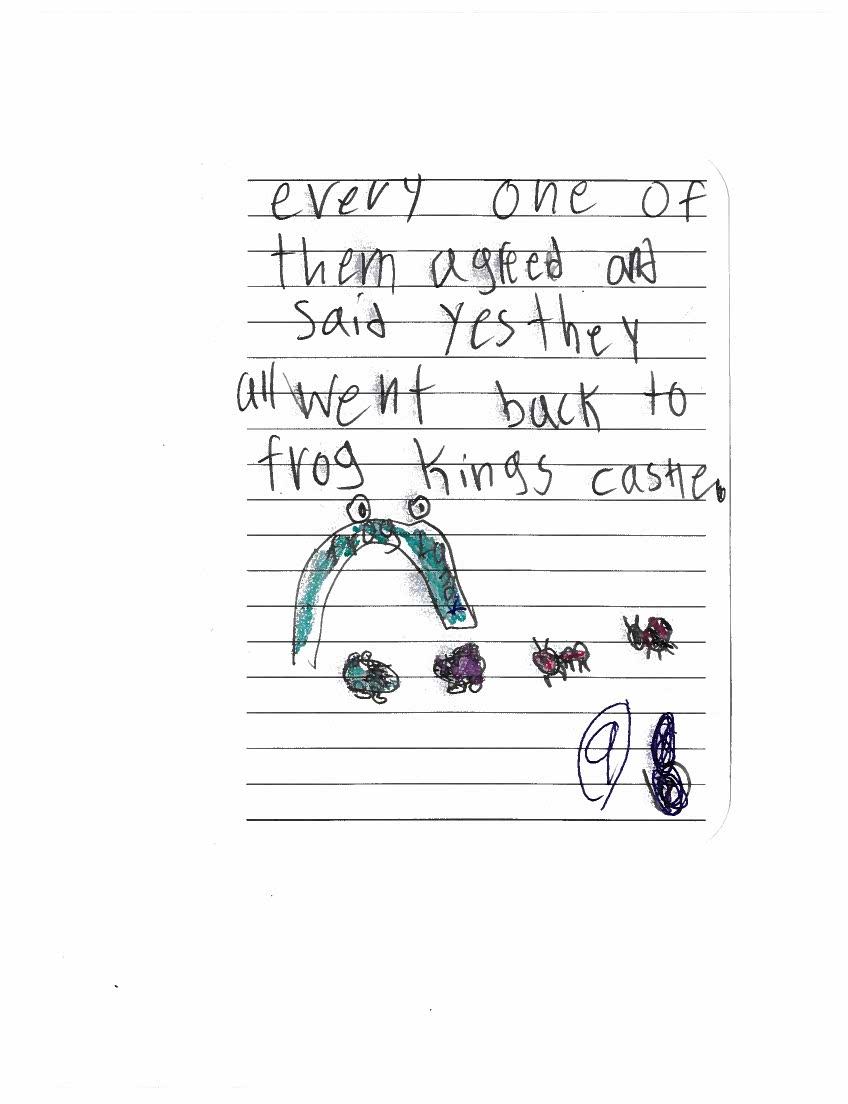 every one of
them agreed and
said yes they
all went back to
frog kings castle.
frog land
9